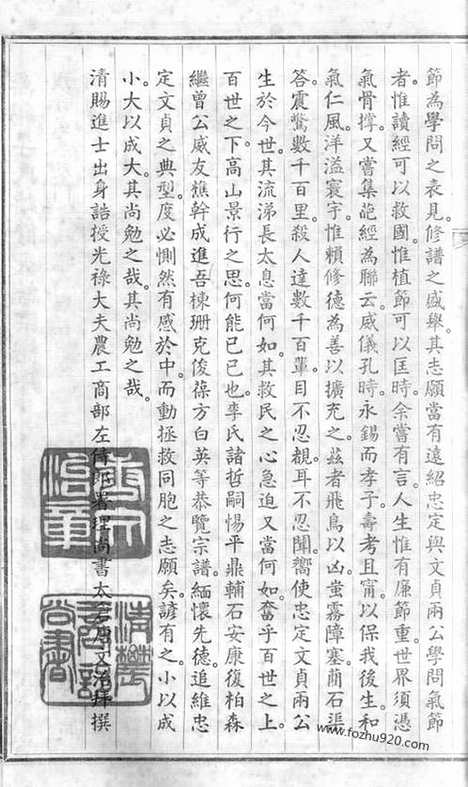 節為學問之表見。修譜之盛舉。其志願當有遠紹忠定與文貞兩公學問氣節
者。惟讀經可以救國。惟植節可以匡時。余嘗有言。人生惟有廉節重。世界須憑
氣骨撐。又嘗集葩經為聯云。威儀孔時。永錫而孝子。壽考且甯。以保我後生。和
氣仁風。洋溢寰宇。惟賴修德為善以擴充之。茲者飛鳥以凶。蚩霧障塞。藺石渠
答。震驚數千百里。殺人達數千百輩。目不忍覩。耳不忍聞。嚮使忠定文貞兩公
生於今世。其流涕長太息當何如。其救民之心急迫又當何如。奮乎百世之上。
百世之下。高山景行之思。何能已已也。李氏諸哲嗣惕平鼎輔石安康復柏森
繼曾公威友樵幹成進吾棟珊克俊葆方白英等恭覽宗譜。緬懷先德。追維忠
定文貞之典型。度必惻然有感於中。而動拯救同胞之志願矣。諺有之。小以成
小。大以成大。其尚勉之哉。其尚勉之哉。
清賜進士出身誥授光祿大夫農工商部左侍郎署理尚書太倉唐文治拜撰
唐文治章
www.fozhu920.com